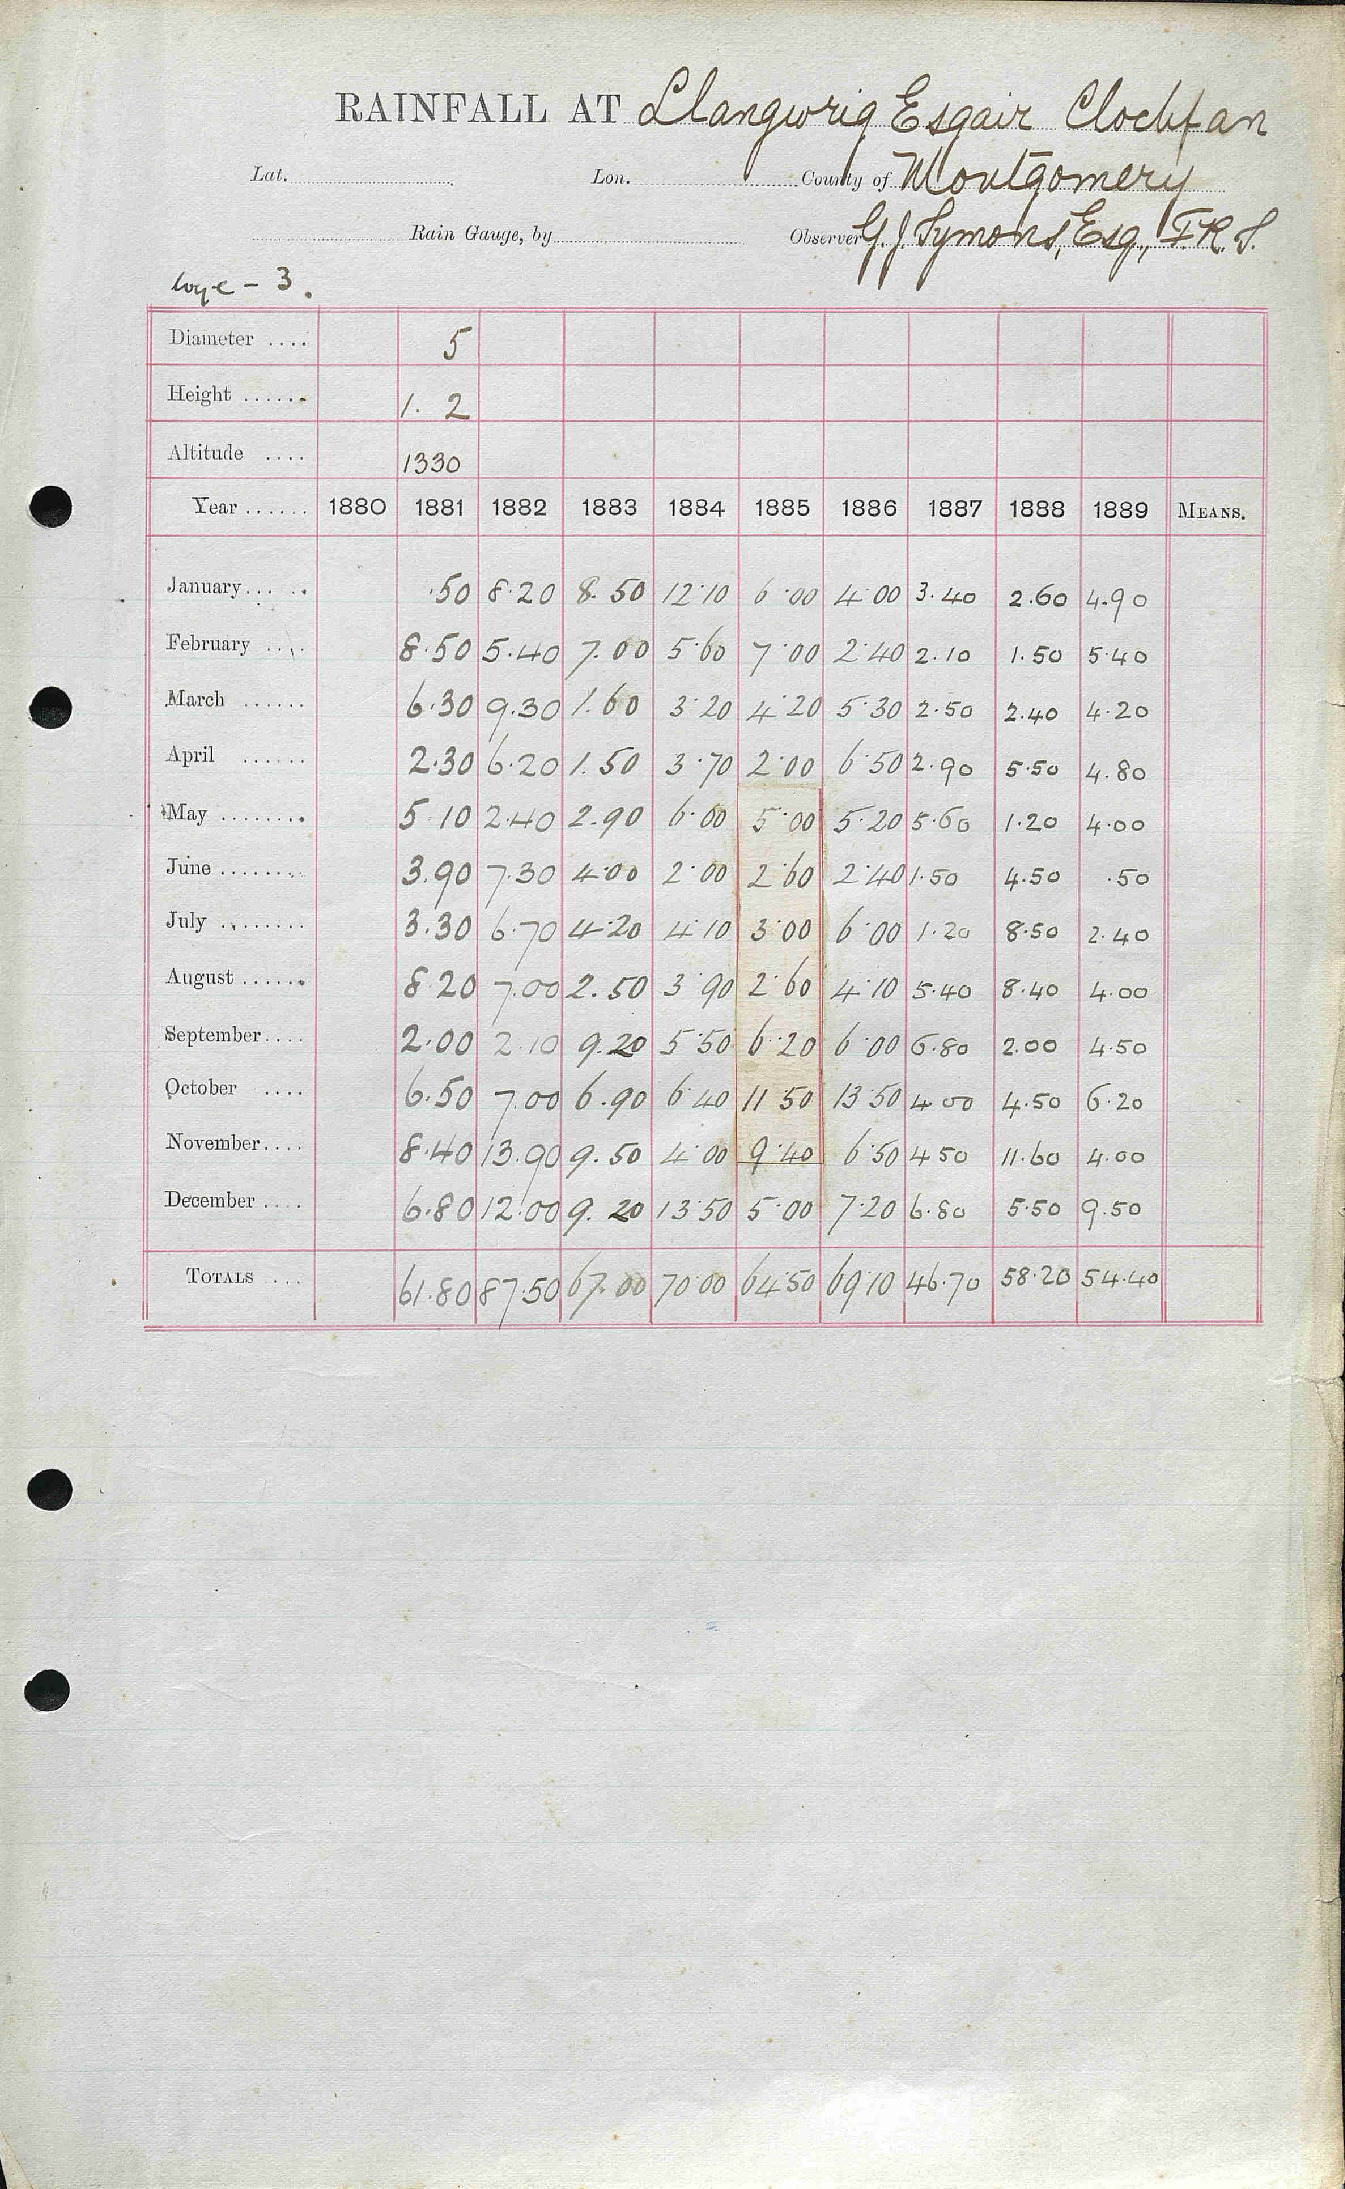 RAINFALL AT Llangwrig Esgair Clochfan
Lat. Lon. County of Montgomery
Rain Gauge, by Observer G J Symons, Esq., F.R.S.
Wye - 3.
Diameter .... 5
Height ...... 1. 2
Altitude .... 1330
Year ...... 1880 1881 1882 1883 1884 1885 1886 1887 1888 1889 MEANS.
January ...... .50 8.20 8.50 12.10 6.00 4.00 3.40 2.60 4.90
February .... 8.50 5.40 7.00 5.60 7.00 2.40 2.10 1.50 5.40
March ...... 6.30 9.30 1.60 3.20 4.20 5.30 2.50 2.40 4.20
April ...... 2.30 6.20 1.50 3.70 2.00 6.50 2.90 5.50 4.80
May ........ 5.10 2.40 2.90 6.00 5.00 5.20 5.60 1.20 4.00
June ........ 3.90 7.30 4.00 2.00 2.60 2.40 1.50 4.50 .50
July ........ 3.30 6.70 4.20 4.10 3.00 6.00 1.20 8.50 2.40
August ...... 8.20 7.00 2.50 3.90 2.60 4.10 5.40 8.40 4.00
September .... 2.00 2.10 9.20 5.50 6.20 6.00 6.80 2.00 4.50
October .... 6.50 7.00 6.90 6.40 11.50 13.50 4.00 4.50 6.20
November .... 8.40 13.90 9.50 4.00 9.40 6.50 4.50 11.60 4.00
December .... 6.80 12.00 9.20 13.50 5.00 7.20 6.80 5.50 9.50
TOTALS ... 61.80 87.50 67.00 70.00 64.50 69.10 46.70 58.20 54.40